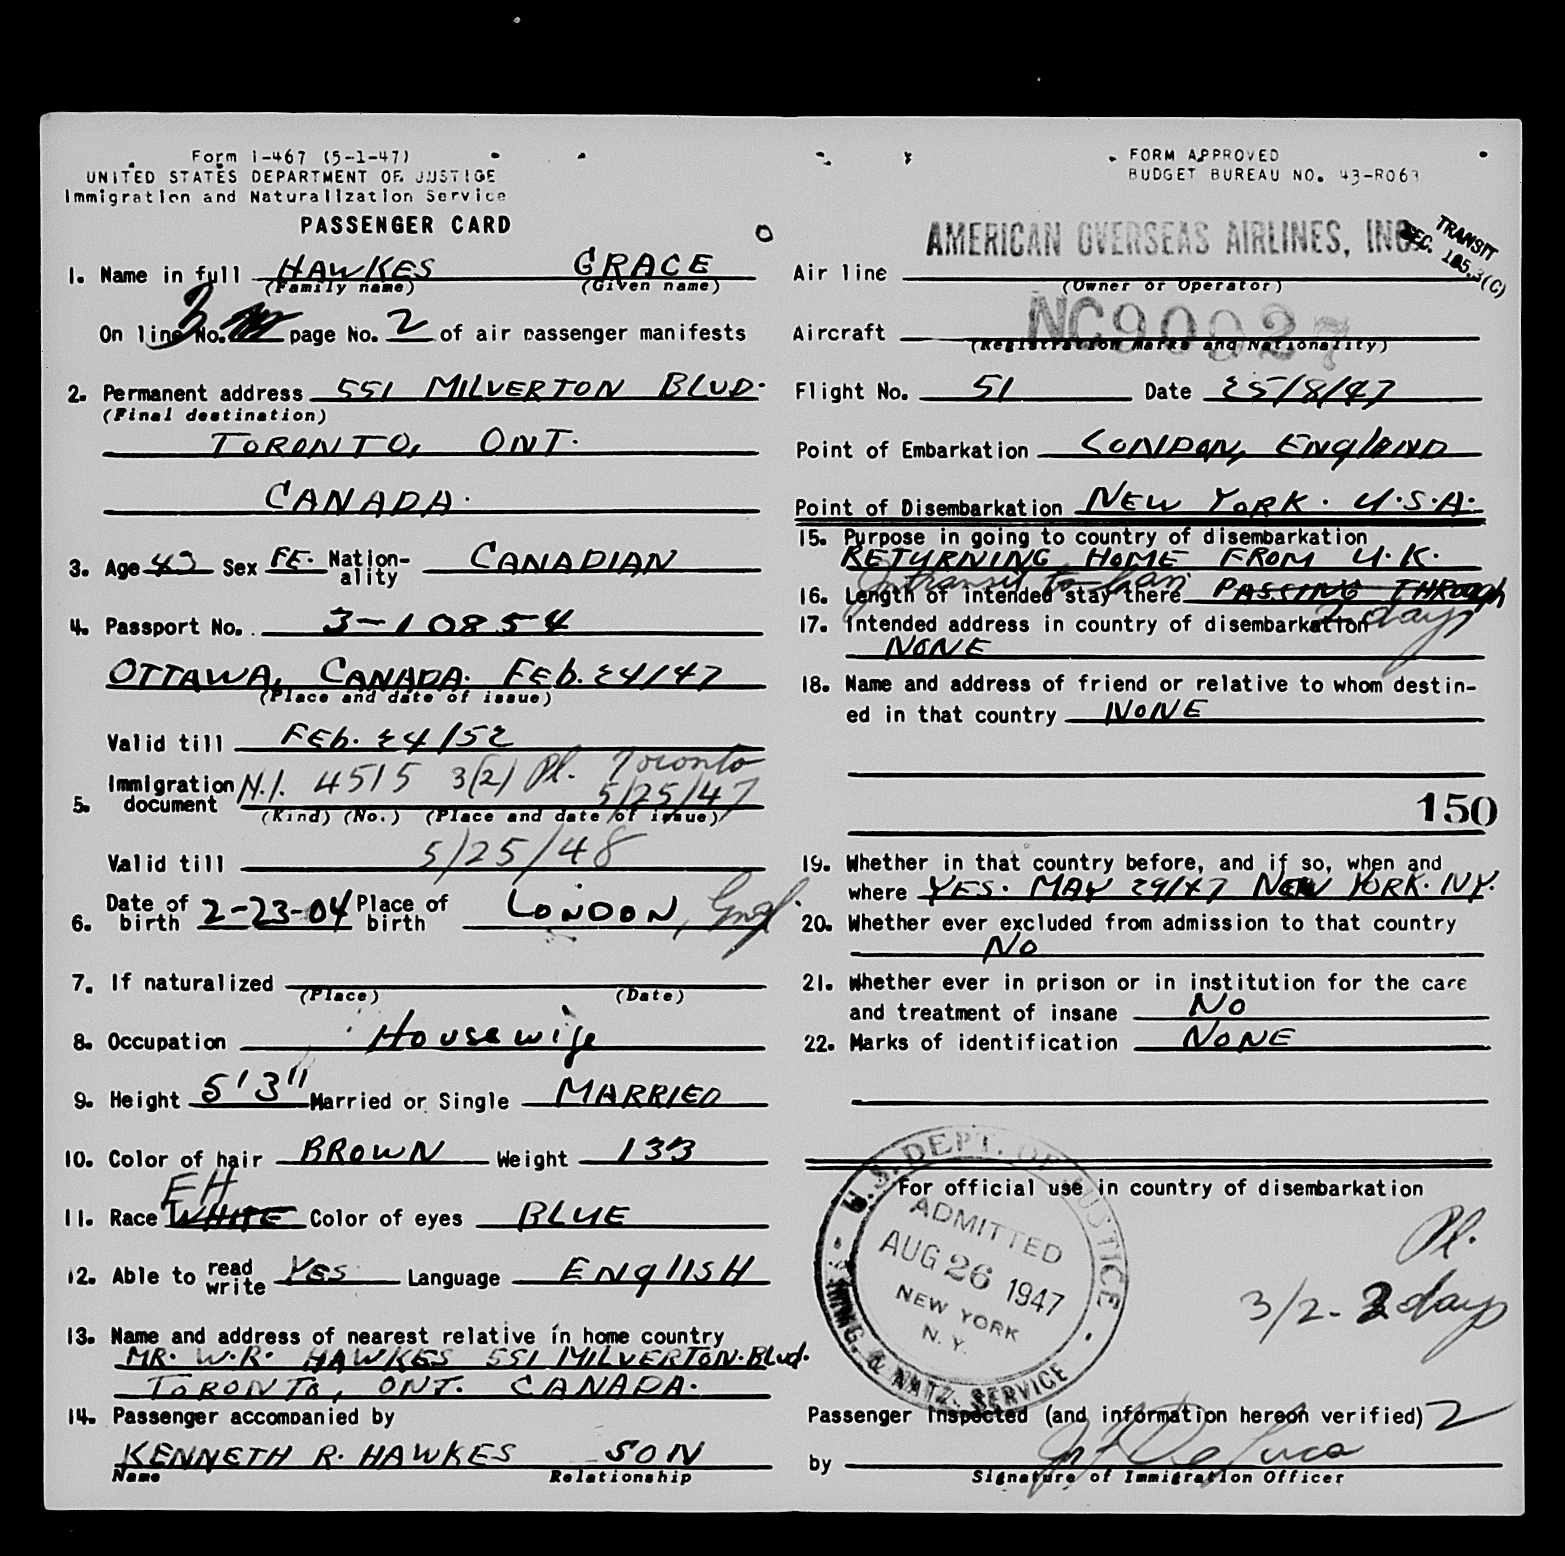 Form I-467 (5-1-47)
UNITED STATES DEPARTMENT OF JUSTICE
Immigration and Naturalization Service
PASSENGER CARD
1. Name in full HAWKES GRACE
(Family name) (Given name)
On line No. 3 page No. 2 of air passenger manifests
2. Permanent address 551 MILVERTON BLVD.
(Final destination)
TORONTO, ONT.
CANADA.
3. Age 43 Sex FE. Nation-ality CANADIAN
4. Passport No. 3-10854
OTTAWA, CANADA. FEb. 24/47
(Place and date of issue)
Valid till FEb. 24/52
5. Immigration document N.I. 4515 3(2) Pl. Toronto 5/25/47
(Kind) (No.) (Place and date of issue)
Valid till 5/25/48
6. Date of birth 2-23-04 Place of birth LONDON, Engl.
7. If naturalized
(Place) (Date)
8. Occupation Housewife
9. Height 5'3" Married or Single MARRIED
10. Color of hair BROWN Weight 133
EH
11. Race WHITE Color of eyes BLUE
12. Able to read write YES Language ENglISH
13. Name and address of nearest relative in home country
MR. W.R. HAWKES 551 MILVERTON. Blvd.
TORONTO, ONT. CANADA.
14. Passenger accompanied by
KENNETH R. HAWKES SON
Name Relationship
FORM APPROVED
BUDGET BUREAU NO. 43-R063
TRANSIT
SEC. 125.3(C)
Air line AMERICAN OVERSEAS AIRLINES, INC.
(Owner or Operator)
Aircraft NC90927
(Registration Marks and Nationality)
Flight No. 51 Date 25/8/47
Point of Embarkation LONDON, ENglAND
Point of Disembarkation NEW YORK. U.S.A.
15. Purpose in going to country of disembarkation
RETURNING HOME FROM U.K.
In transit to Can
16. Length of intended stay there PASSING THROUGH
2 days
17. Intended address in country of disembarkation
NONE
18. Name and address of friend or relative to whom destin-
ed in that country NONE
150
19. Whether in that country before, and if so, when and
where YES. MAY 29/47 NEW YORK. NY.
20. Whether ever excluded from admission to that country
No
21. Whether ever in prison or in institution for the care
and treatment of insane No
22. Marks of identification NONE
For official use in country of disembarkation
U.S. DEPT. OF JUSTICE
ADMITTED
AUG 26 1947
NEW YORK
N.Y.
IMMG. & NATZ. SERVICE
Pl.
3/2- 2 days
Passenger Inspected (and information hereon verified) 2
by
Signature of Immigration Officer